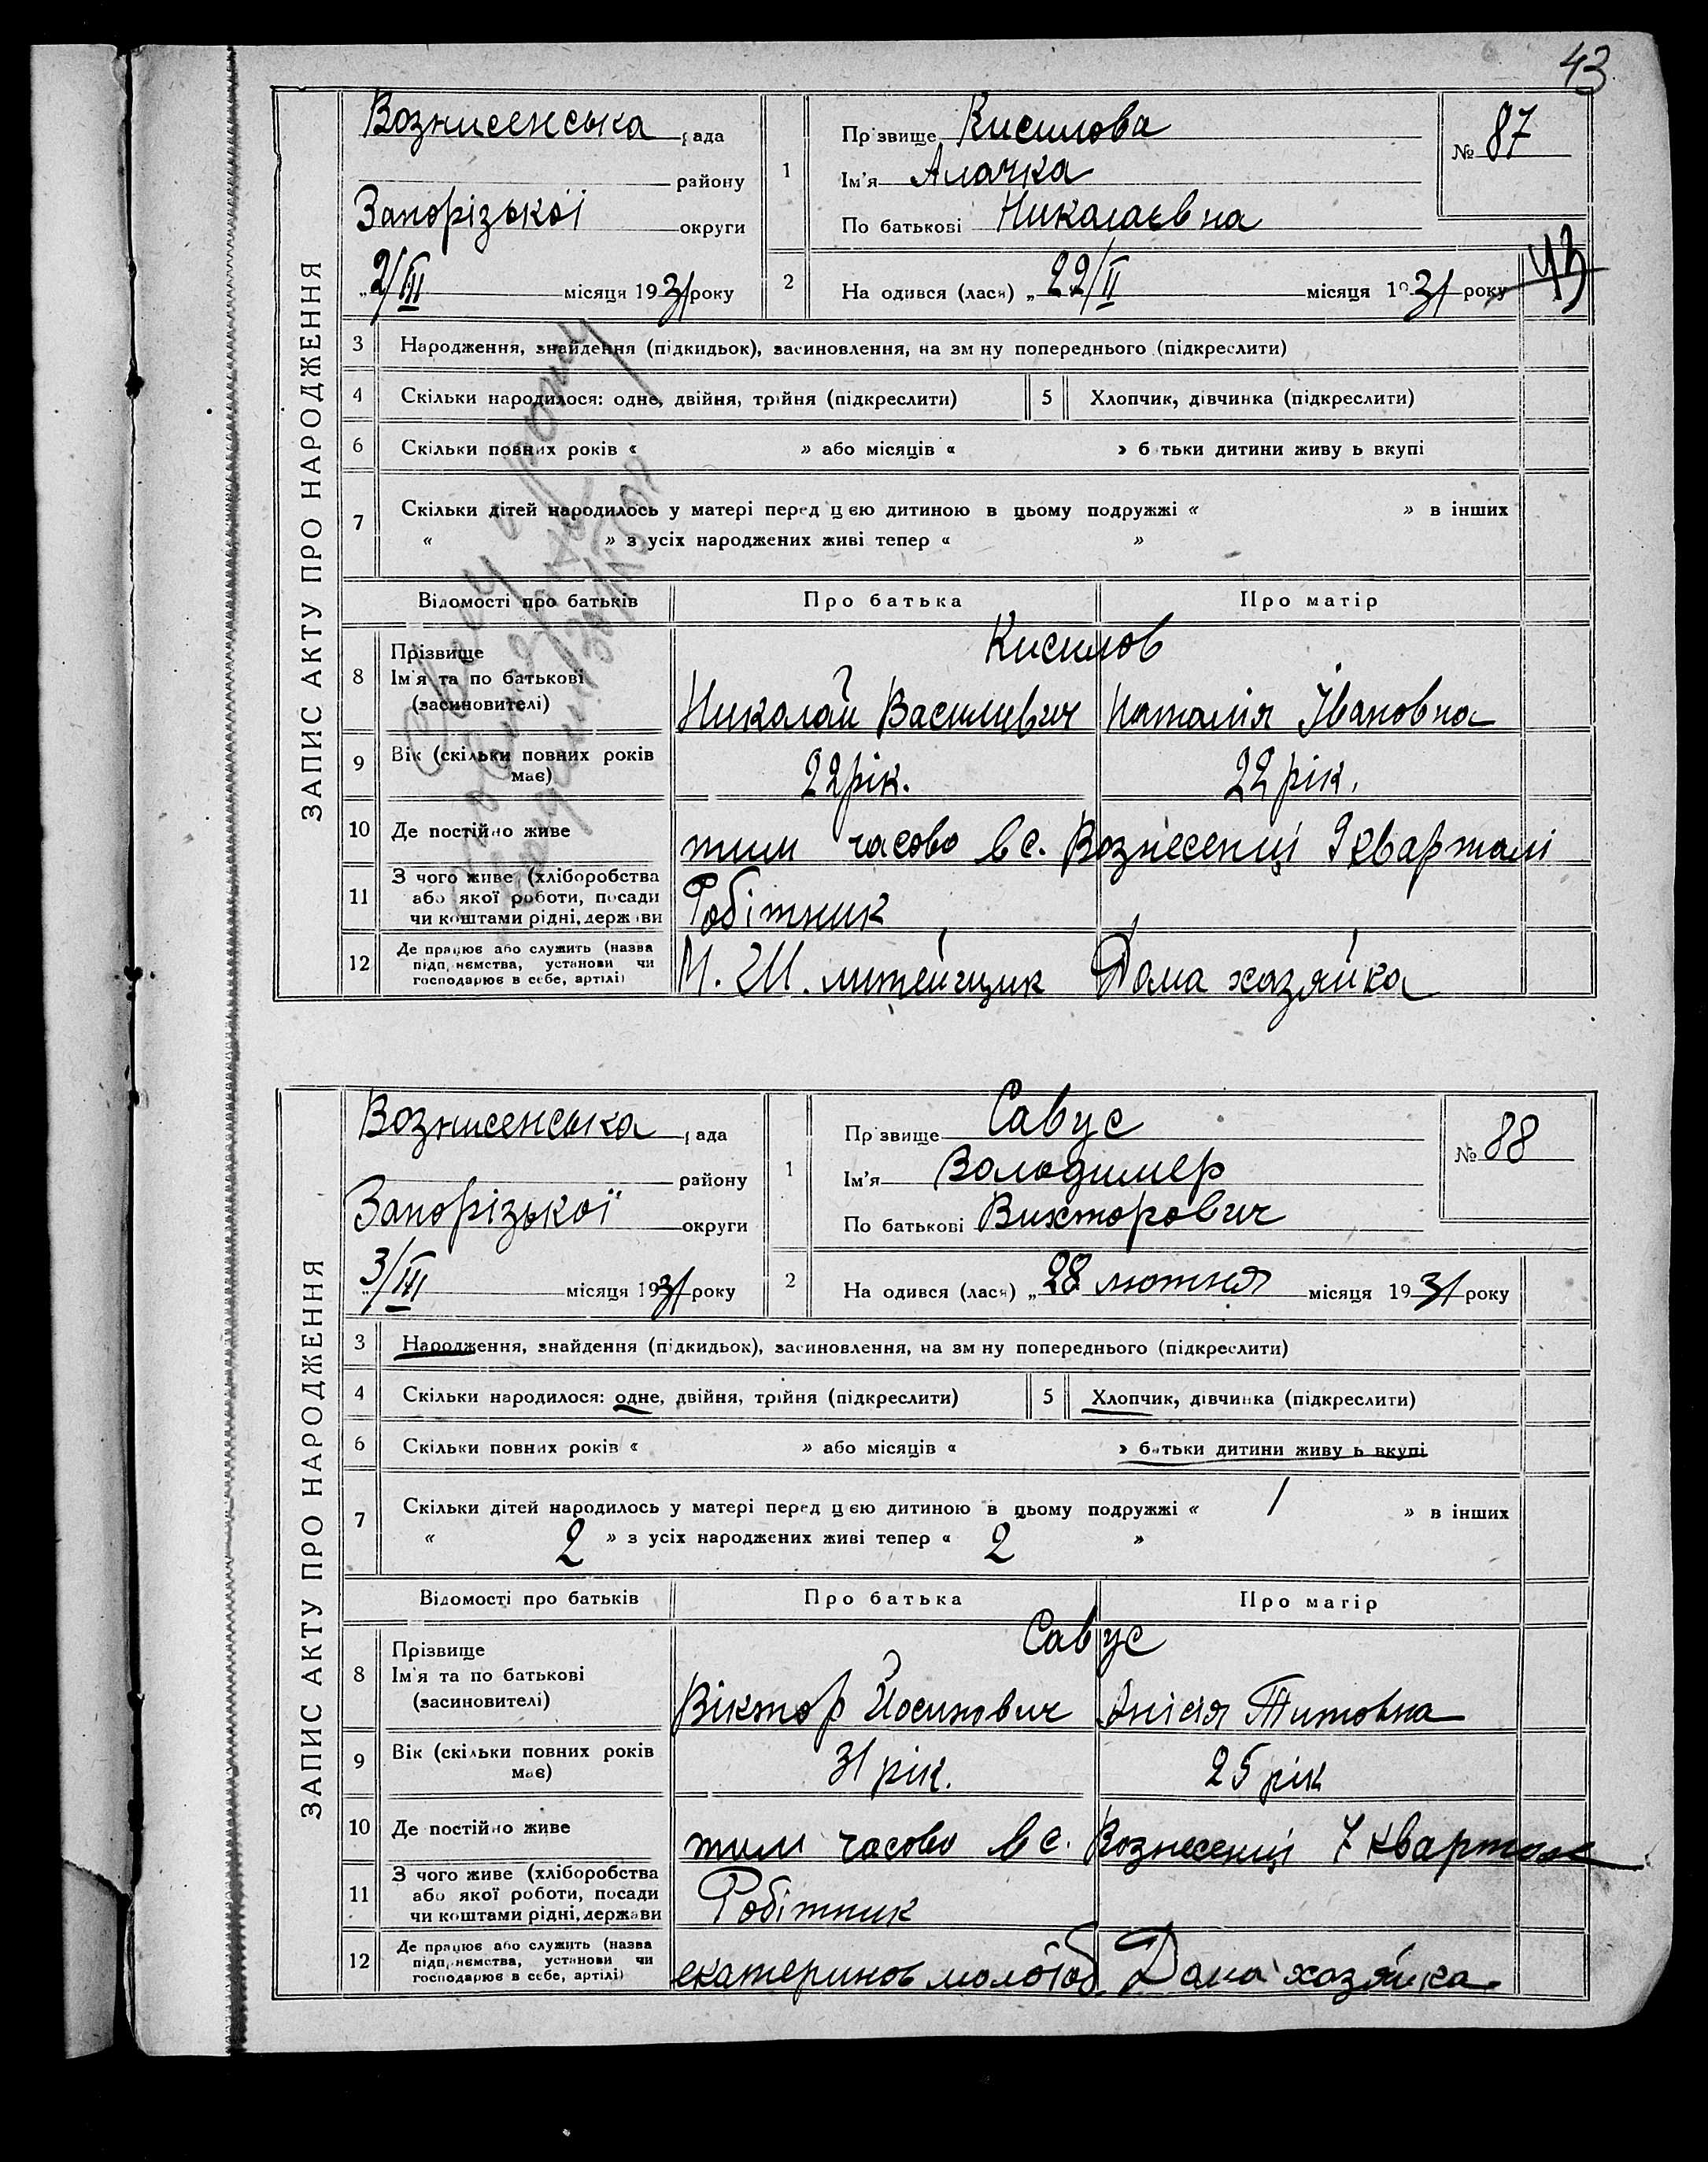 43
ЗАПИС АКТУ ПРО НАРОДЖЕННЯ
Вознисенська рада
району
Запорізької округи
„2/III місяця 1931 року
1 Прізвище Кисилова
Ім'я Алачка
По батькові Николаєвна
№ 87
2 На одився (лася) „22/II місяця 1931 року
43
3 Народження, знайдення (підкидьок), засиновлення, на зм ну попереднього (підкреслити)
4 Скільки народилося: одне, двійня, трійня (підкреслити) 5 Хлопчик, дівчинка (підкреслити)
6 Скільки повних років « » або місяців « » б тьки дитини живу ь вкупі
7 Скільки дітей народилось у матері перед цією дитиною в цьому подружжі « » в інших
« » з усіх народжених живі тепер « »
Відомості про батьків Про батька Про матір
8 Прізвище
Ім'я та по батькові
(засиновителі)
Кисилов
Николай Василиевич Наталія Івановна
9 Вік (скільки повних років має) 22 рік. 22 рік.
10 Де постійно живе тим часово в с. Вознесенці 9 кварталі
11 З чого живе (хліборобства
або якої роботи, посади
чи коштами рідні, держави
Робітник
12 Де працює або служить (назва
підприємства, установи чи
господарює в себе, артілі)
литейщик Дома хазяйка
ЗАПИС АКТУ ПРО НАРОДЖЕННЯ
Вознисенська рада
району
Запорізької округи
3/III місяця 1931 року
1 Прізвище Савус
Ім'я Володимер
По батькові Вихторович
№ 88
2 На одився (лася) „28 лютня місяця 1931 року
3 Народження, знайдення (підкидьок), засиновлення, на зм ну попереднього (підкреслити)
4 Скільки народилося: одне, двійня, трійня (підкреслити) 5 Хлопчик, дівчинка (підкреслити)
6 Скільки повних років « » або місяців « » батьки дитини живу ь вкупі
7 Скільки дітей народилось у матері перед цією дитиною в цьому подружжі « 1 » в інших
« 2 » з усіх народжених живі тепер « 2 »
Відомості про батьків Про батька Про матір
8 Прізвище
Ім'я та по батькові
(засиновителі)
Савус
Віктор Йосипович Анісія Титовна
9 Вік (скільки повних років має) 31 рік. 25 рік
10 Де постійно живе тим часово в с. Вознесенці 7 квартал
11 З чого живе (хліборобства
або якої роботи, посади
чи коштами рідні, держави
Робітник
12 Де працює або служить (назва
підприємства, установи чи
господарює в себе, артілі)
екатеринов Дома хазяйка